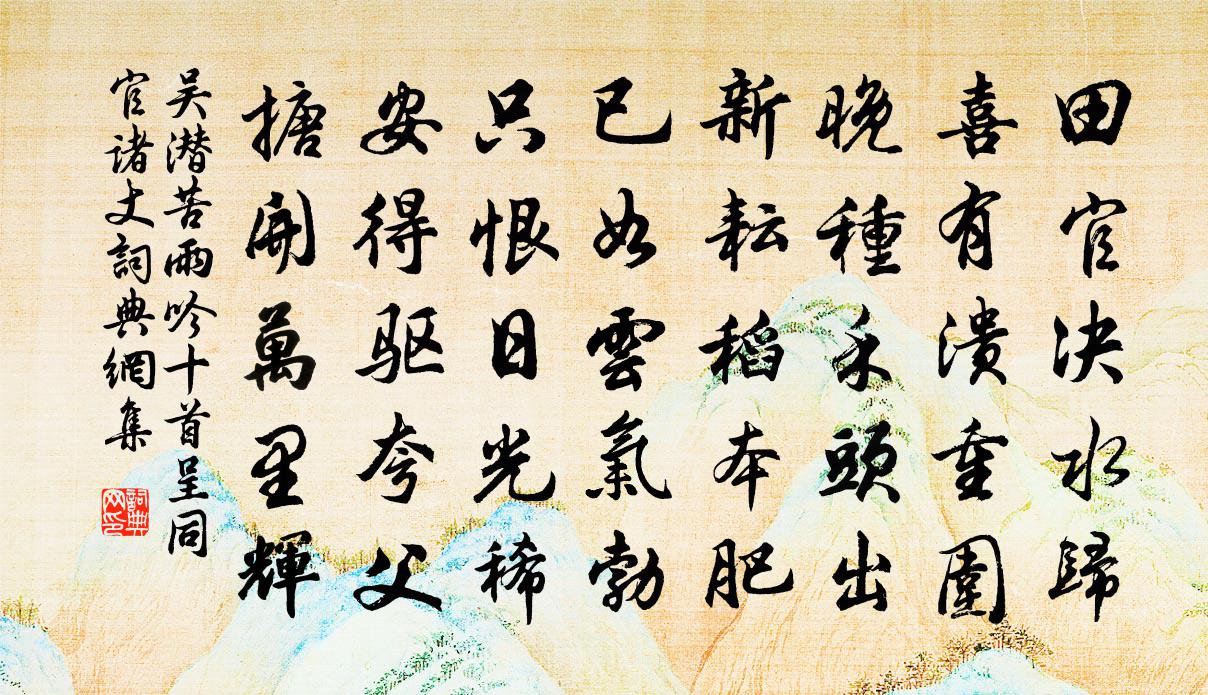 田官决水歸
喜有潰重圍
晚種禾頭出
新耘稻本肥
已如雲氣勃
只恨日光稀
安得驱夸父
搪開萬里輝
吴潜苦雨吟十首呈同
官诸丈詞典網集
詞典网印